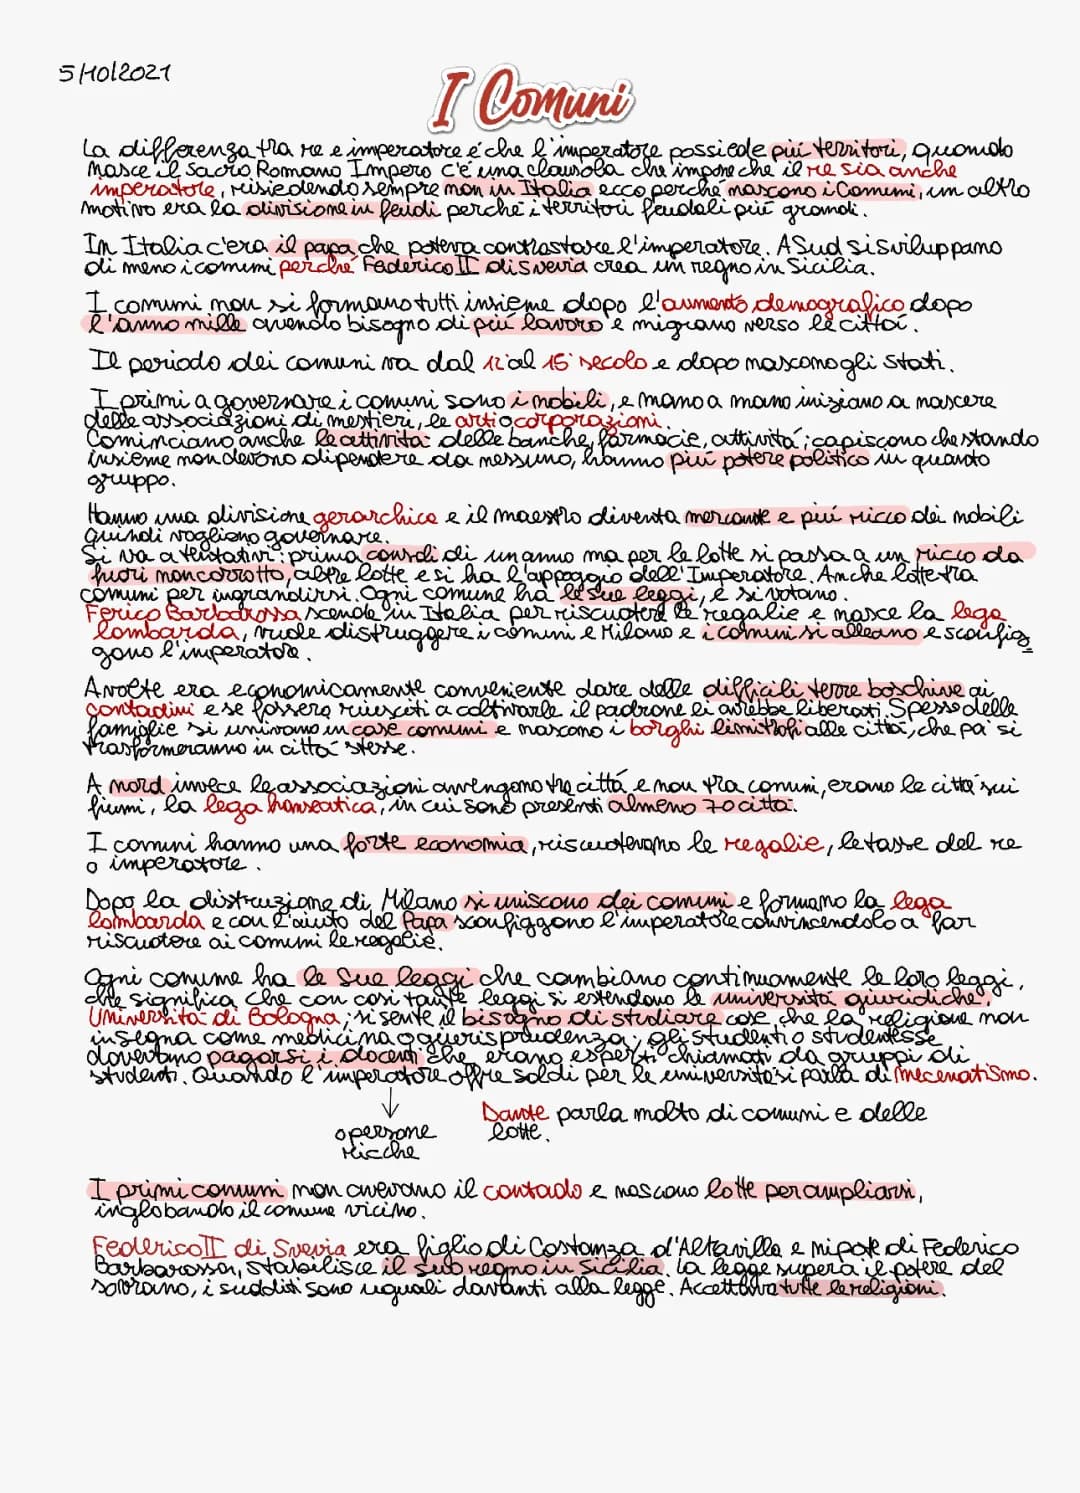 5/10/2021
I Comuni
La differenza tra re e imperatore é che l'imperatore possiede piú territori, quando
nasce il Sacro Romano Impero c'é una clausola che impone che il re sia anche
imperatore, risiedendo sempre non in Italia ecco perché nascono i Comuni, un altro
motivo era la divisione in feudi perché i territori feudali piú grandi.
In Italia c'era il papa che poteva contrastare l'imperatore. A Sud si sviluppano
di meno i comuni perché Federico II di Svevia crea un regno in Sicilia.
I comuni non si formano tutti insieme dopo l'aumento demografico dopo
l'anno mille avendo bisogno di piú lavoro e migrano verso le cittá.
Il periodo dei comuni va dal 12° al 15° secolo e dopo nascono gli Stati.
I primi a governare i comuni sono i nobili, e mano a mano iniziano a nascere
delle associazioni di mestieri, le arti o corporazioni.
Cominciano anche le attivitá delle banche, farmacie, attivitá; capiscono che stando
insieme non devono dipendere da nessuno, hanno piú potere politico in quanto
gruppo.
Hanno una divisione gerarchica e il maestro diventa mercante e piú ricco dei nobili
quindi vogliono governare.
Si va a tentativi: prima consoli di un anno ma per le lotte si passa a un ricco da
fuori non corrotto, altre lotte e si ha l'appoggio dell'Imperatore. Anche lotte tra
comuni per ingrandirsi. Ogni comune ha le sue leggi, e si votano.
Ferico Barbarossa scende in Italia per riscuotere le regalie e nasce la lega
lombarda, vuole distruggere i comuni e Milano e i comuni si alleano e sconfig
gono l'imperatore.
A volte era economicamente conveniente dare delle difficili terre boschive ai
contadini e se fossero riusciti a coltivarle il padrone li avrebbe liberati. Spesso delle
famiglie si univano in case comuni e nascono i borghi limitrofi alle cittá, che poi si
trasformeranno in cittá stesse.
A nord invece le associazioni avvengono tra cittá e non tra comuni, erano le cittá sui
fiumi, la lega hanseatica, in cui sono presenti almeno 70 cittá.
I comuni hanno una forte economia, riscuotevano le regalie, le tasse del re
o imperatore.
Dopo la distruzione di Milano si uniscono dei comuni e formano la lega
lombarda e con l'aiuto del Papa sconfiggono l'imperatore convincendolo a far
riscuotere ai comuni le regalie.
Ogni comune ha le sue leggi che cambiano continuamente le loro leggi,
che significa che con cosi tante leggi si estendono le universitá giuridiche,
Universitá di Bologna; si sente il bisogno di studiare cose che la religione non
insegna come medicina o giurisprudenza; gli studenti o studentesse
dovevano pagarsi i docenti che erano esperti chiamati da gruppi di
studenti. Quando l'imperatore offre soldi per le universitá si parla di mecenatismo.
o persone
ricche
Dante parla molto di comuni e delle
lotte.
I primi comuni non avevano il contado e nascono lotte per ampliarsi,
inglobando il comune vicino.
Federico II di Svevia era figlio di Costanza d'Altavilla e nipote di Federico
Barbarossa, stabilisce il suo regno in Sicilia. La legge supera il potere del
sovrano, i sudditi sono uguali davanti alla legge. Accettava tutte le religioni.